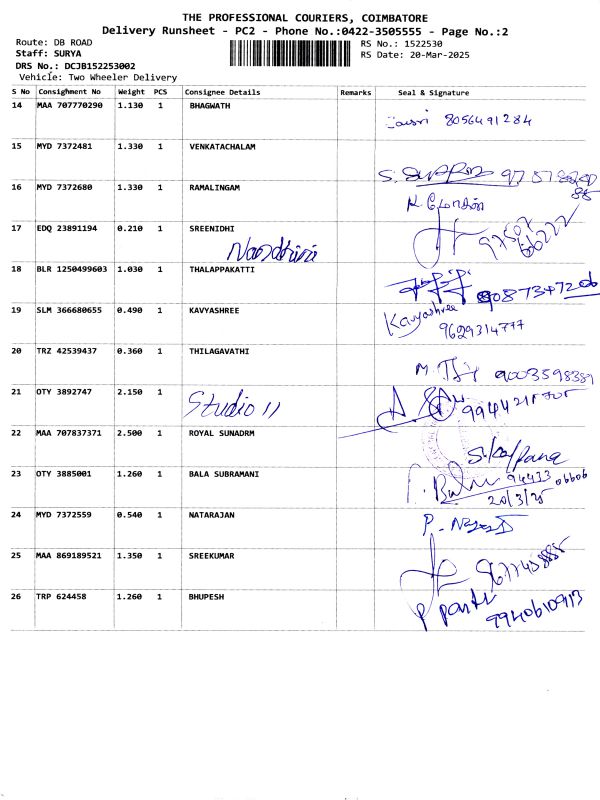 THE PROFESSIONAL COURIERS, COIMBATORE
Delivery Runsheet - PC2 - Phone No.:0422-3505555 - Page No.:2
Route: DB ROAD
RS No.: 1522530
Staff: SURYA
RS Date: 20-Mar-2025
DRS No.: DCJB152253002
Vehicle: Two Wheeler Delivery
S No Consighment No Weight PCS Consignee Details Remarks Seal & Signature
14 MAA 707770290 1.130 1 BHAGWATH
8056491284
15 MYD 7372481 1.330 1 VENKATACHALAM
16 MYD 7372680 1.330 1 RAMALINGAM
17 EDQ 23891194 0.210 1 SREENIDHI
Nandhini
18 BLR 1250499603 1.030 1 THALAPPAKATTI
19 SLM 366680655 0.490 1 KAVYASHREE Kavyashree
9629314777
20 TRZ 42539437 0.360 1 THILAGAVATHI
9003598389
21 OTY 3892747 2.150 1
Studio 11
22 MAA 707837371 2.500 1 ROYAL SUNADRM
S.Kalpana
23 OTY 3885001 1.260 1 BALA SUBRAMANI
94433 06606
20/3/25
24 MYD 7372559 0.540 1 NATARAJAN
25 MAA 869189521 1.350 1 SREEKUMAR
26 TRP 624458 1.260 1 BHUPESH
9940610913